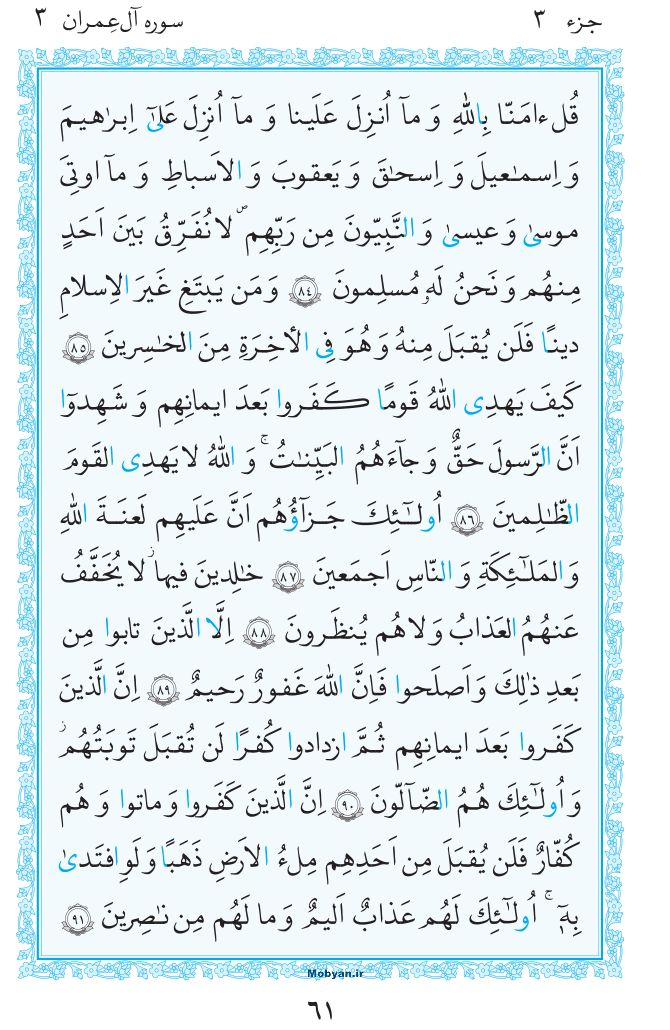 جزء ٣ سوره آل‌عِمران ٣
قُل ءامَنّا بِاللّٰهِ وَ مآ اُنزِلَ عَلَينا وَ مآ اُنزِلَ عَلىٰٓ اِبرٰهيمَ
وَ اِسمٰعيلَ وَ اِسحٰقَ وَ يَعقوبَ وَ الاَسباطِ وَ مآ اوتِىَ
موسىٰ وَ عيسىٰ وَ النَّبِيّونَ مِن رَبِّهِم ۖ لا نُفَرِّقُ بَينَ اَحَدٍ
مِنهُم وَ نَحنُ لَهٗ مُسلِمونَ ﴿٨٤﴾ وَ مَن يَبتَغِ غَيرَ الاِسلامِ
دينًا فَلَن يُقبَلَ مِنهُ وَ هُوَ فِى الأخِرَةِ مِنَ الخٰسِرينَ ﴿٨٥﴾
كَيفَ يَهدِى اللّٰهُ قَومًا كَفَروا بَعدَ ايمانِهِم وَ شَهِدوٓا
اَنَّ الرَّسولَ حَقٌّ وَ جآءَهُمُ البَيِّنٰتُ ۚ وَ اللّٰهُ لا يَهدِى القَومَ
الظّٰلِمينَ ﴿٨٦﴾ اُولٰٓئِكَ جَزآؤُهُم اَنَّ عَلَيهِم لَعنَةَ اللّٰهِ
وَ المَلٰٓئِكَةِ وَ النّاسِ اَجمَعينَ ﴿٨٧﴾ خٰلِدينَ فيها لا يُخَفَّفُ
عَنهُمُ العَذابُ وَ لا هُم يُنظَرونَ ﴿٨٨﴾ اِلَّا الَّذينَ تابوا مِن
بَعدِ ذٰلِكَ وَ اَصلَحوا فَاِنَّ اللّٰهَ غَفورٌ رَحيمٌ ﴿٨٩﴾ اِنَّ الَّذينَ
كَفَروا بَعدَ ايمانِهِم ثُمَّ ازدادوا كُفرًا لَن تُقبَلَ تَوبَتُهُم
وَ اُولٰٓئِكَ هُمُ الضّآلّونَ ﴿٩٠﴾ اِنَّ الَّذينَ كَفَروا وَ ماتوا وَ هُم
كُفّارٌ فَلَن يُقبَلَ مِن اَحَدِهِم مِلءُ الاَرضِ ذَهَبًا وَ لَوِ افتَدىٰ
بِهٖٓ ۗ اُولٰٓئِكَ لَهُم عَذابٌ اَليمٌ وَ ما لَهُم مِن نٰصِرينَ ﴿٩١﴾
Mobyan.ir
٦١